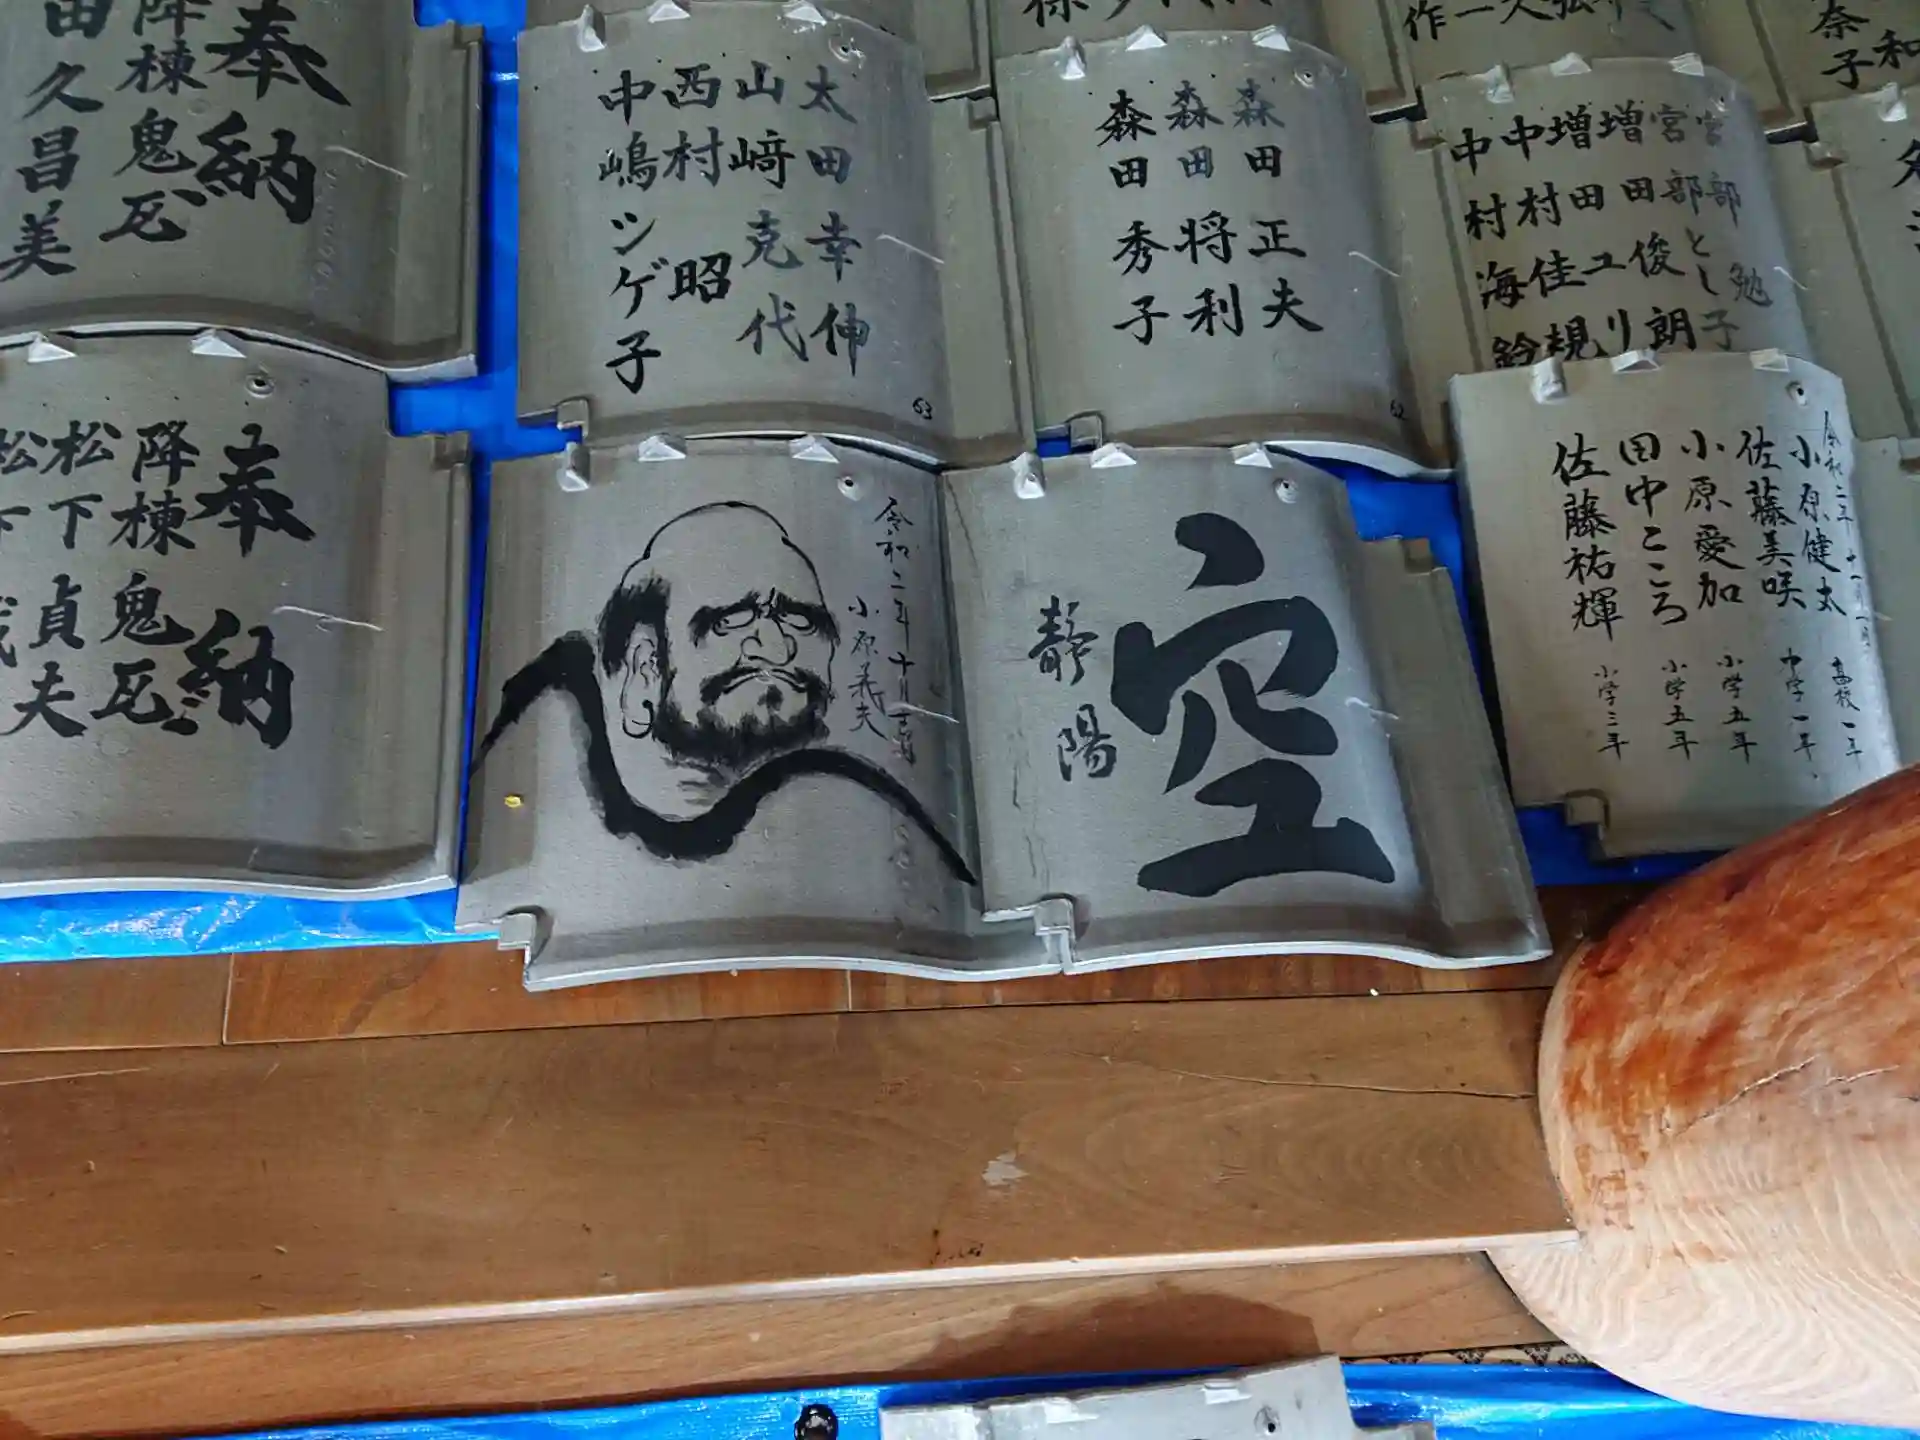 奉納
降棟鬼瓦
久昌美
太田幸伸
山﨑克代
西村昭
中嶋シゲ子
63
森田正夫
森田将利
森田秀子
62
宮部勉
宮部とし子
増田俊朗
増田ユリ
中村佳規
中村海鈴
奉納
降棟鬼瓦
松下貞夫
松下
令和二年十月吉日
小原義夫
空
静陽
令和二年十一月一日
小原健太 高校一年
佐藤美咲 中学一年
小原愛加 小学五年
田中こころ 小学五年
佐藤祐輝 小学三年